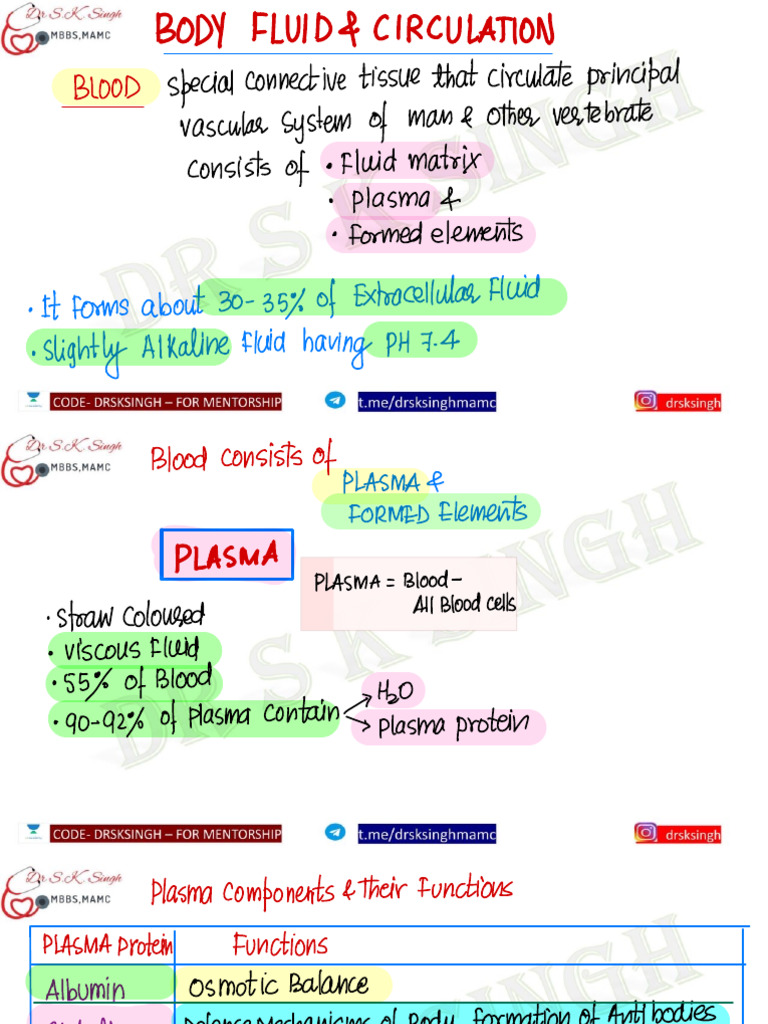 Dr S.K Singh
MBBS,MAMC
BODY FLUID & CIRCULATION
BLOOD special connective tissue that circulate principal
vascular system of man & other vertebrate
consists of • Fluid matrix
• Plasma &
• Formed elements
DR S K SINGH
• It forms about 30-35% of Extracellular Fluid
• slightly Alkaline Fluid having PH 7.4
CODE- DRSKSINGH – FOR MENTORSHIP
t.me/drsksinghmamc
drsksingh
Dr S.K Singh
MBBS,MAMC
Blood consists of
PLASMA &
FORMED Elements
PLASMA
PLASMA = Blood –
All Blood cells
DR S K SINGH
• Straw Coloured
• Viscous Fluid
• 55% of Blood
• 90-92% of Plasma Contain
H2O
Plasma protein
CODE- DRSKSINGH – FOR MENTORSHIP
t.me/drsksinghmamc
drsksingh
Dr S.K Singh
MBBS,MAMC
Plasma Components & Their Functions
PLASMA Protein Functions
Albumin Osmotic Balance
Defence Mechanisms of Body, Formation of Antibodies